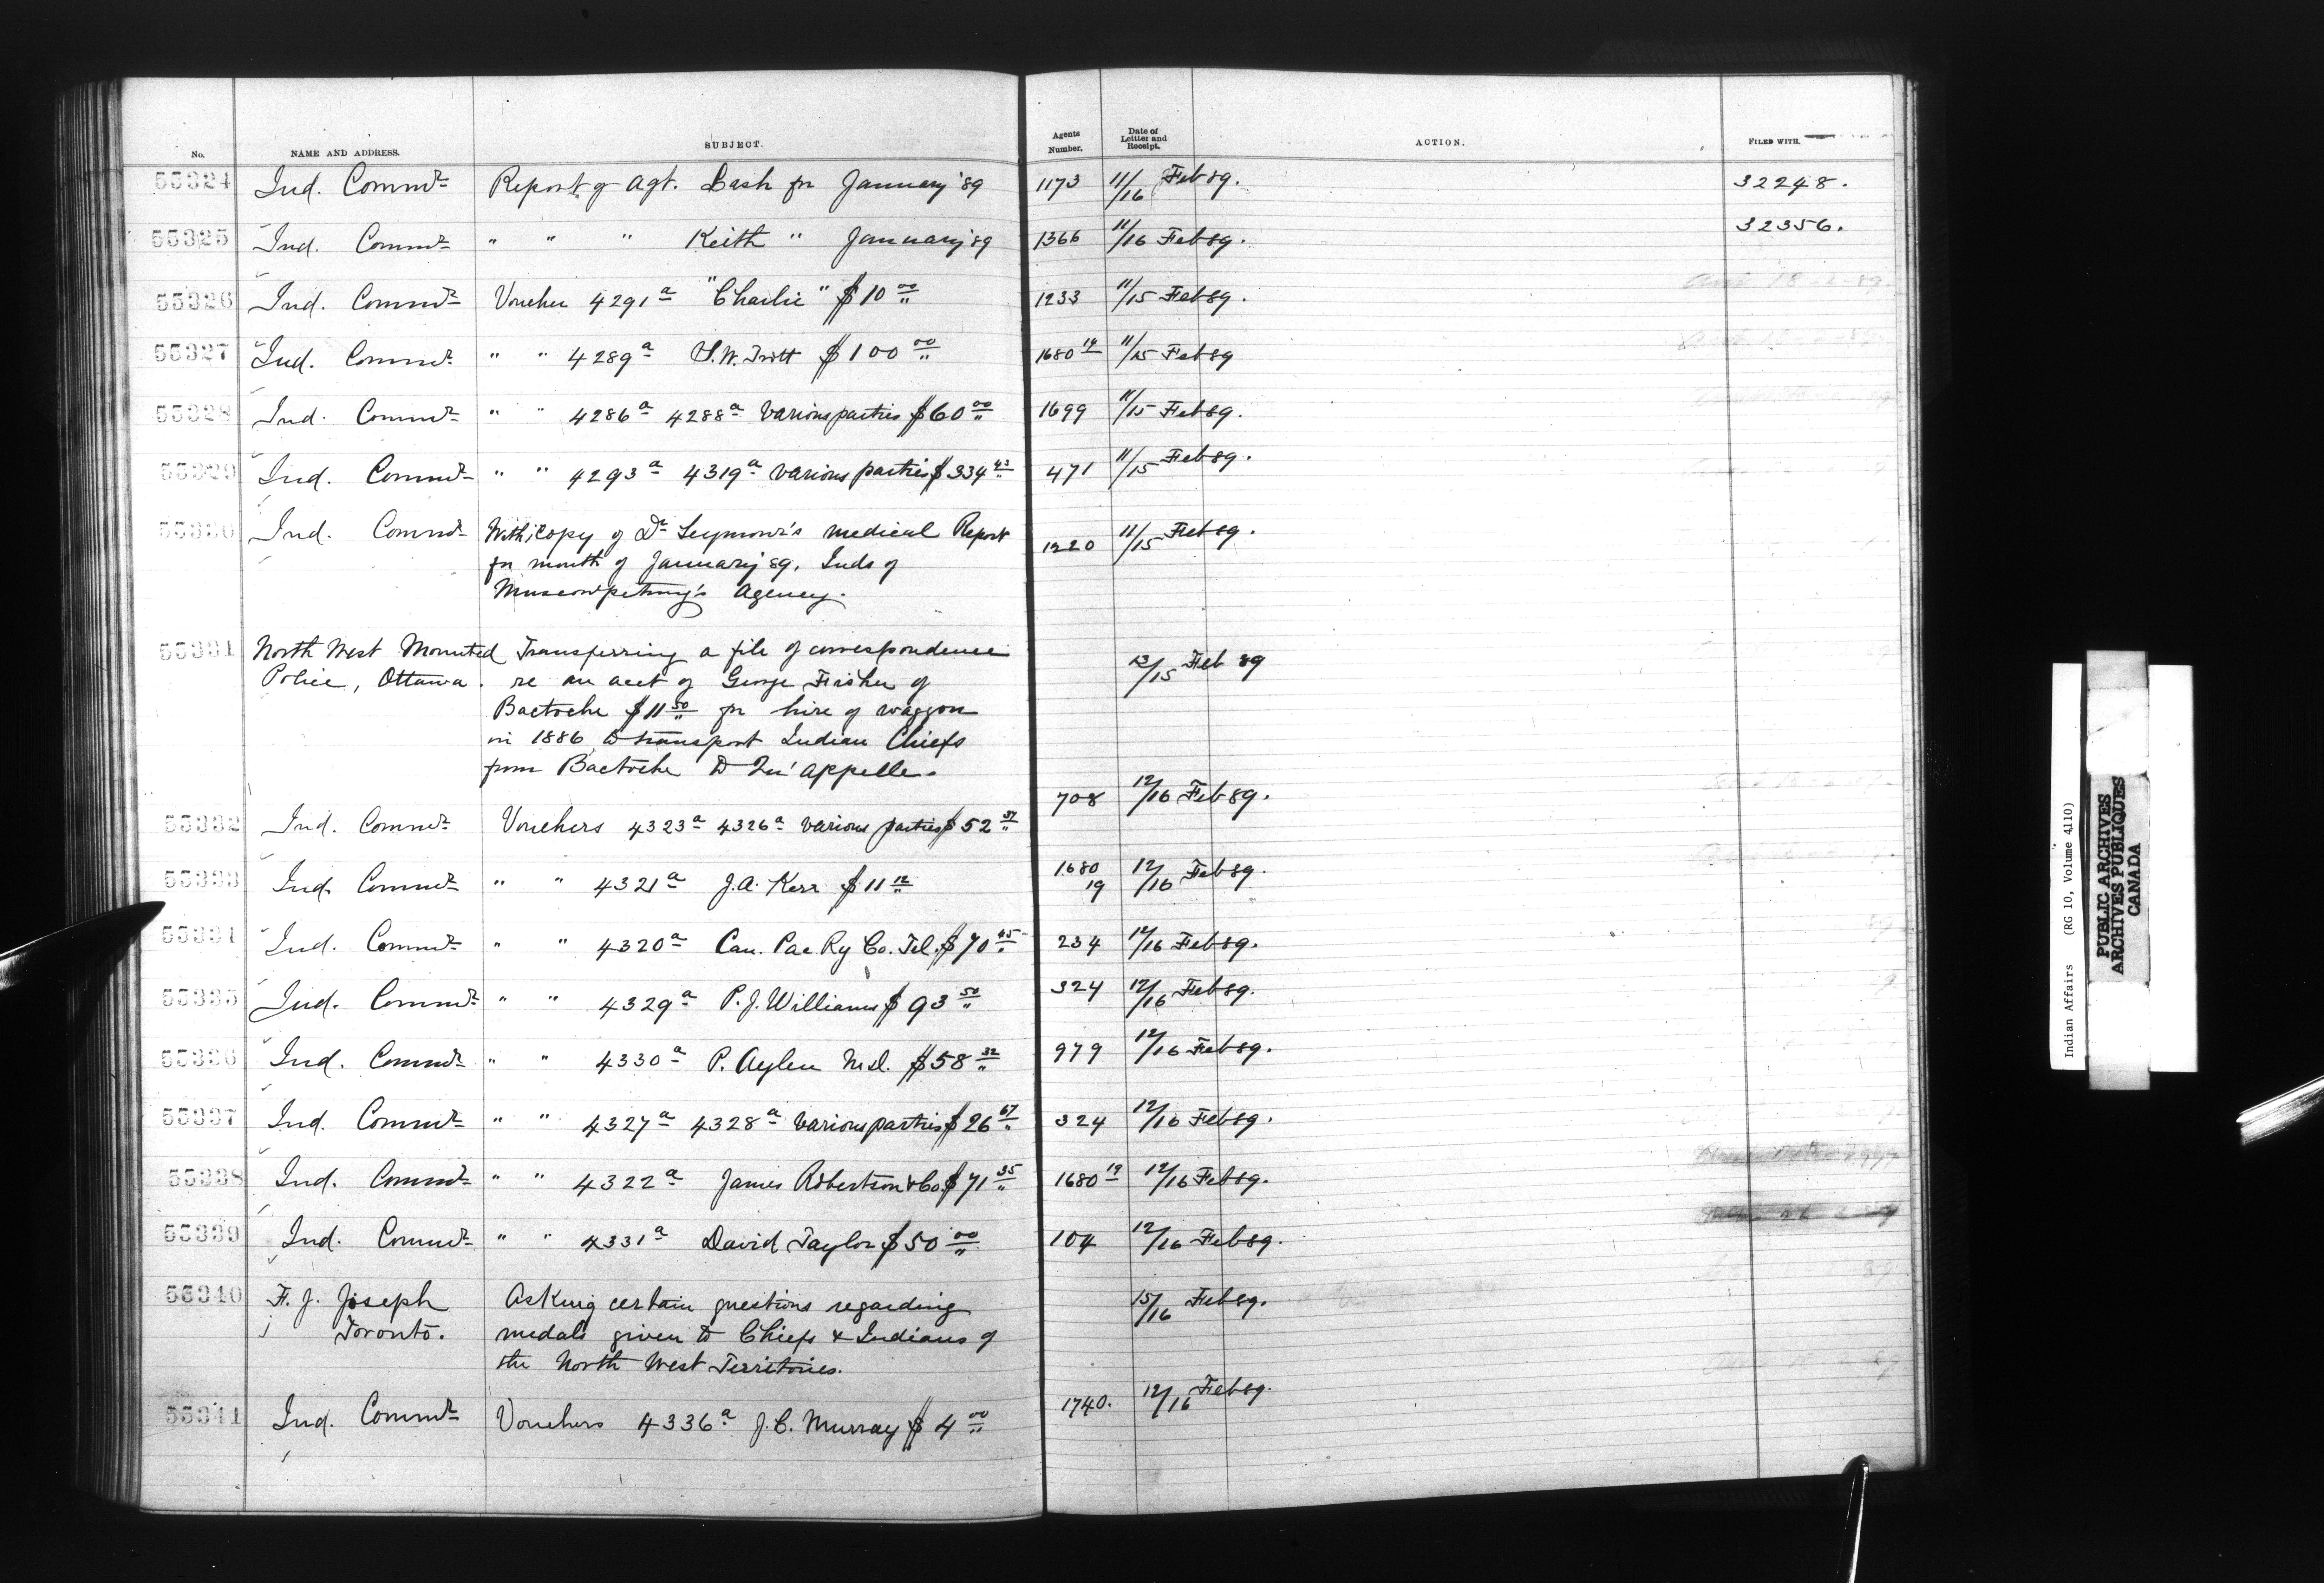 No. NAME AND ADDRESS. SUBJECT. Agents Number. Date of Lettter and Receipt. ACTION. FILED WITH.
55324 Ind. Commr Report of Agt. Lash for January '89 1173 11/16 Feb 89. 32248.
55325 Ind. Commr " " " Keith " January '89 1366 11/16 Feb 89. 32356.
55326 Ind. Commr Voucher 4291a "Charlie" $10 00 1233 11/15 Feb 89.
55327 Ind. Commr " " 4289a $100 00 1680 19 11/15 Feb 89
55328 Ind. Commr " " 4286a 4288a various parties $60 00 1699 11/15 Feb 89.
55329 Ind. Commr " " 4293a 4319a various parties $334 43 471 11/15 Feb 89.
55330 Ind. Commr With copy of Dr Seymour's medical Report 1220 11/15 Feb 89.
for month of January 89, Inds of
Muscowpetung's Agency.
55331 North West Mounted Transferring a file of correspondence
Police, Ottawa. re an acct of George Fisher of 13/15 Feb 89
Bactoche $11 50 for hire of waggon
in 1886 to transport Indian Chiefs
from Bactoche to Qu'appelle.
55332 Ind. Commr Vouchers 4323a 4326a various parties $52 37 708 12/16 Feb 89.
55333 Ind. Commr " " 4321a J.A. Kerr $11 12 1680 19 12/16 Feb 89.
55334 Ind. Commr " " 4320a Can. Pac Ry Co. Tel. $70 45 234 12/16 Feb 89.
55335 Ind. Commr " " 4329a P.J. Williams $93 50 324 12/16 Feb 89.
55336 Ind. Commr " " 4330a P. Aylen M.D. $58 32 979 12/16 Feb 89.
55337 Ind. Commr " " 4327a 4328a various parties $26 67 324 12/16 Feb 89.
55338 Ind. Commr " " 4322a James Robertson & Co $71 35 1680 19 12/16 Feb 89.
55339 Ind. Commr " " 4331a David Taylor $50 00 104 12/16 Feb 89.
55340 F. J. Joseph Asking certain questions regarding 15/16 Feb 89.
Toronto. medals given to Chiefs & Indians of
the North West Territories.
55341 Ind. Commr Vouchers 4336a J.C. Murray $4 00 1740. 12/16 Feb 89.
Indian Affairs (RG 10, Volume 4110)
PUBLIC ARCHIVES
ARCHIVES PUBLIQUES
CANADA